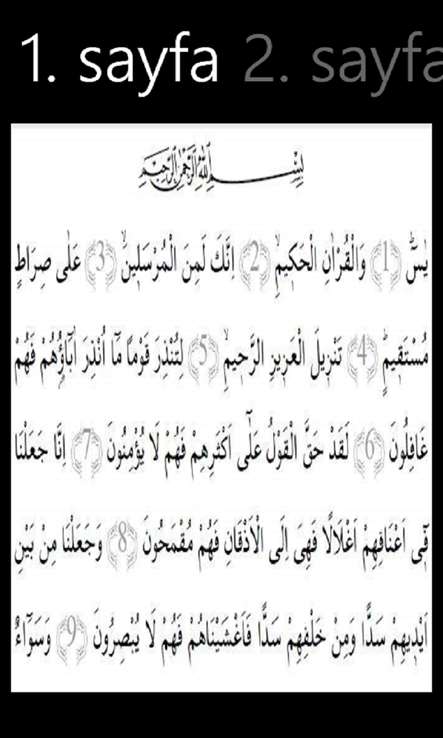 1. sayfa 2. sayfa
بِسْمِ اللهِ الرَّحْمٰنِ الرَّحِيمِ
يٰسٓ ﴿1﴾ وَالْقُرْاٰنِ الْحَكِيمِۙ ﴿2﴾ اِنَّكَ لَمِنَ الْمُرْسَلِينَۙ ﴿3﴾ عَلٰى صِرَاطٍ
مُسْتَقِيمٍۜ ﴿4﴾ تَنْزِيلَ الْعَزِيزِ الرَّحِيمِۙ ﴿5﴾ لِتُنْذِرَ قَوْمًا مَٓا اُنْذِرَ اٰبَٓاؤُ۬هُمْ فَهُمْ
غَافِلُونَ ﴿6﴾ لَقَدْ حَقَّ الْقَوْلُ عَلٰٓى اَكْثَرِهِمْ فَهُمْ لَا يُؤْمِنُونَ ﴿7﴾ اِنَّا جَعَلْنَا
فِٓى اَعْنَاقِهِمْ اَغْلَالًا فَهِىَ اِلَى الْاَذْقَانِ فَهُمْ مُقْمَحُونَ ﴿8﴾ وَجَعَلْنَا مِنْ بَيْنِ
اَيْدِيهِمْ سَدًّا وَمِنْ خَلْفِهِمْ سَدًّا فَاَغْشَيْنَاهُمْ فَهُمْ لَا يُبْصِرُونَ ﴿9﴾ وَسَوَٓاءٌ